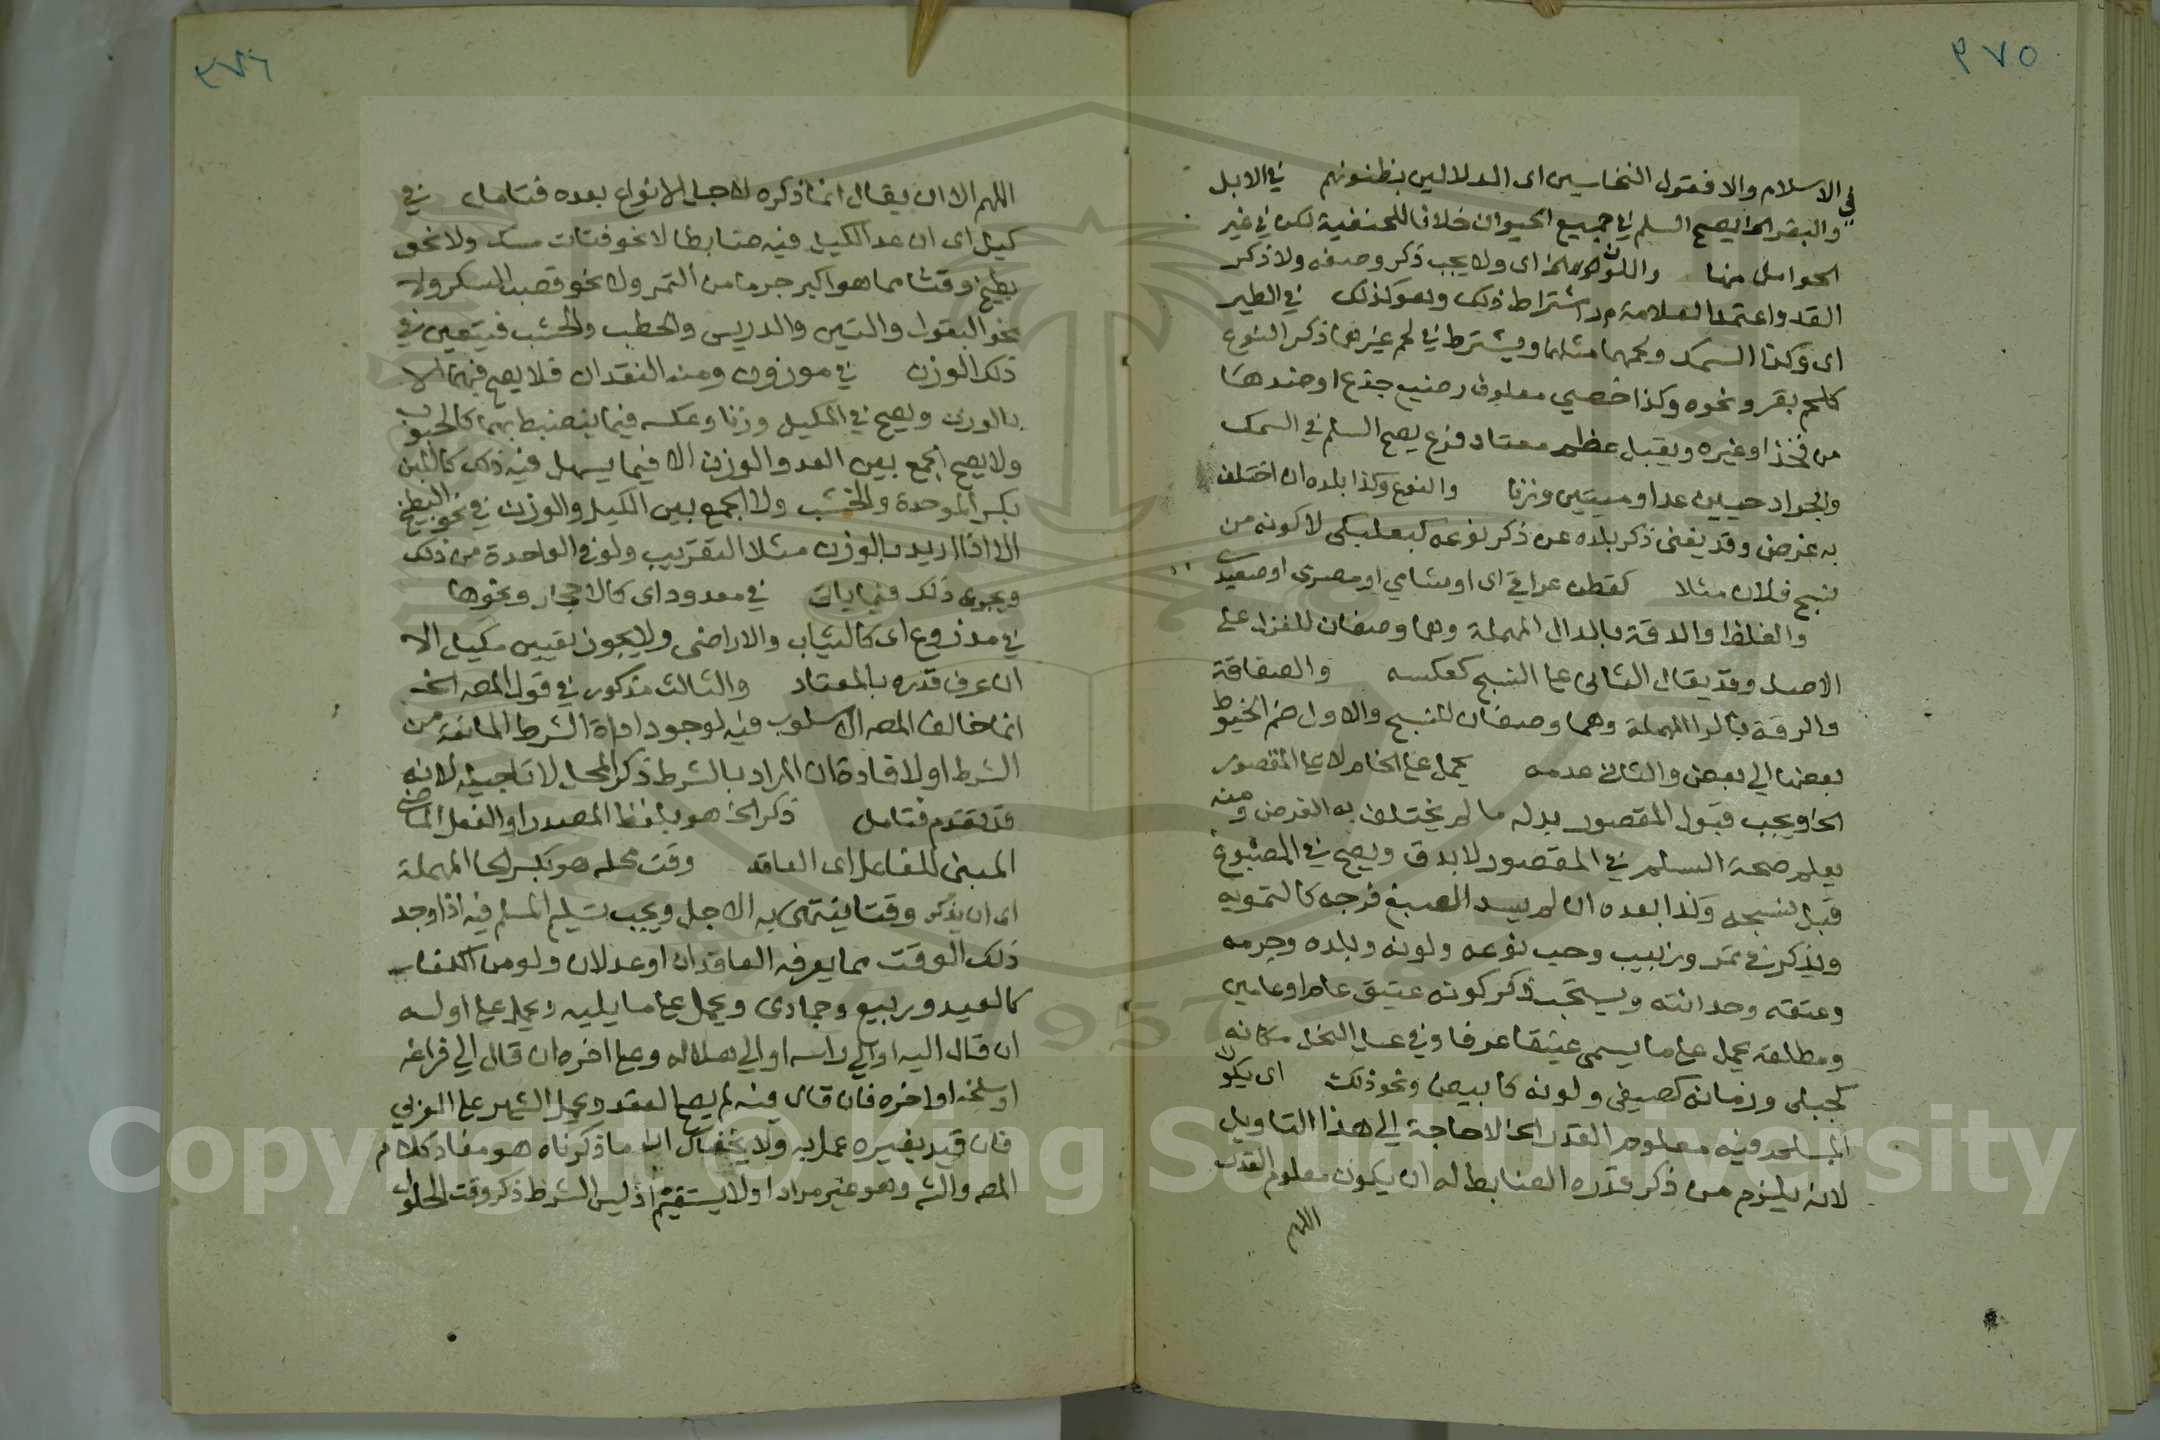 ٣٧٥
في الاسلام والا فقول النخاسين اى الدلالين بظنونهم في الابل
والبقر الخ يصح السلم في جميع الحيوان خلافا للحنفية لكن في غير
الحوامل منها واللون الخ اى ولا يجب ذكر وصفه ولا ذكر
القد واعتمد العلامة م ر اشتراط ذلك وهو كذلك في الطير
اى وكذا السمك ولحمهما مثلهما ويشترط في لحم غيرهما ذكر النوع
كلحم بقر ونحوه وكذا خصي معلوف رضيع جذع او ضدها
من فخذ او غيره ويقبل عظم معتاد فرع يصح السلم في السمك
والجراد حيين عدا وميتين وزنا والنوع وكذا بلده ان اختلف
به غرض وقد يغنى ذكر بلده عن ذكر نوعه كبعلبكى لا كونه من
نسج فلان مثلا كقطن عراقي اى او شامي او مصرى او صعيدى
والغلظ والدقة بالدال المهملة وهما وصفان للغزل على
الاصل وقد يقال الثانى على النسج كعكسه والصفاقة
والرقة بالرا المهملة وهما وصفان للنسج والاول ضم الخيوط
بعضها الي بعض والثانى عدمه يحمل على الخام لا على المقصور
الخ ويجب قبول المقصور بدله ما لم يختلف به الغرض ومنه
يعلم صحة السلم في المقصور لا بدق ويصح في المصبوغ
قبل نسجه وكذا بعده ان لم يسد الصبغ فرجه كالتمويه
ويذكر في تمر وزبيب وحب نوعه ولونه وبلده وجرمه
وعتقه وحداثته ويستحب ذكر كونه عتيق عام او عامين
ومطلقه يحمل على ما يسمى عتيقا عرفا وفي عسل النحل مكانه
كجبلى وزمانه كصيفى ولونه كابيض ونحو ذلك اى يكون
المسلم فيه معلوم القدر الخ لا حاجة الي هذا التاويل
لانه يلزم من ذكر قدره الضابط له ان يكون معلوم القدر
اللهم
٣٧٦
اللهم الا ان يقال انما ذكره لاجل الانواع بعده فتامل في
كيل اى ان عد الكيل فيه ضابطا لا نحو فتات مسك ولا نحو
بطيخ وقثا مما هو اكبر جرما من التمر ولا نحو قصب السكر ولا
نحو البقول والتين والدريس والحطب والخشب فيتعين في
ذلك الوزن في موزون ومنه النقدان فلا يصح فيهما الا
بالوزن ويصح في المكيل وزنا وعكسه فيما ينضبط بهما كالحبوب
ولا يصح الجمع بين العد والوزن الا فيما يسهل فيه ذلك كاللبن
بكسر الموحدة والخشب ولا الجمع بين الكيل والوزن في نحو البطيخ
الا اذا اريد بالوزن مثلا التقريب ولو في الواحدة من ذلك
ويجرى ذلك فيما ياتى في معدود اى كالاحجار ونحوها
في مذروع اى كالثياب والاراضى ولا يجوز تعيين مكيال الا
ان عرف قدره بالمعتاد والثالث مذكور في قول المصه الخ
انما خالف المصه الاسلوب فيه لوجود اداة الشرط المانعة من
الشرط اولا فادة ان المراد بالشرط ذكر المحل لا تاجيله لانه
قد تقدم فتامل ذكر الخ هو بلفظ المصدر او الفعل الماضى
المبنى للفاعل اى العاقد وقت محله هو بكسر الحا المهملة
اى ان يذكر وقتا ينتهى به الاجل ويجب تسليم المسلم فيه اذا وجد
ذلك الوقت مما يعرفه العاقدان او عدلان ولو من الكفار
كالعيد وربيع وجمادى ويحمل على ما يليه ويحمل على اوله
ان قال اليه او الي راسه او الي هلاله وعلى اخره ان قال الي فراغه
او سلخه او اخره فان قال فيه لم يصح العقد ويحمل الشهر على العربي
فان قيد بغيره عمل به ولا يخفاك ان ما ذكرناه هو مفاد كلام
المصه والشه وهو غير مراد اولا يستقيم اذ ليس الشرط ذكر وقت الحلول
Copyright © King Saud University
1957